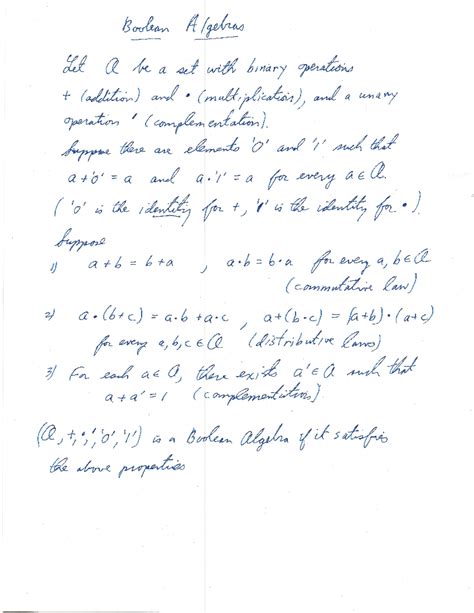 Boolean Algebras
Let Q be a set with binary operations
+ (addition) and • (multiplication), and a unary
operation ' (complementation).
Suppose there are elements '0' and '1' such that
a+'0' = a and a•'1' = a for every a∈Q.
('0' is the identity for +, '1' is the identity for •).
Suppose
1) a+b = b+a , a•b = b•a for every a, b∈Q
(commutative law)
2) a•(b+c) = a•b+a•c , a+(b•c) = (a+b)•(a+c)
for every a,b,c∈Q (distributive laws)
3) For each a∈Q, there exists a'∈Q such that
a+a'=1 (complementation)
(Q,+,•,','0','1') is a Boolean Algebra if it satisfies
the above properties